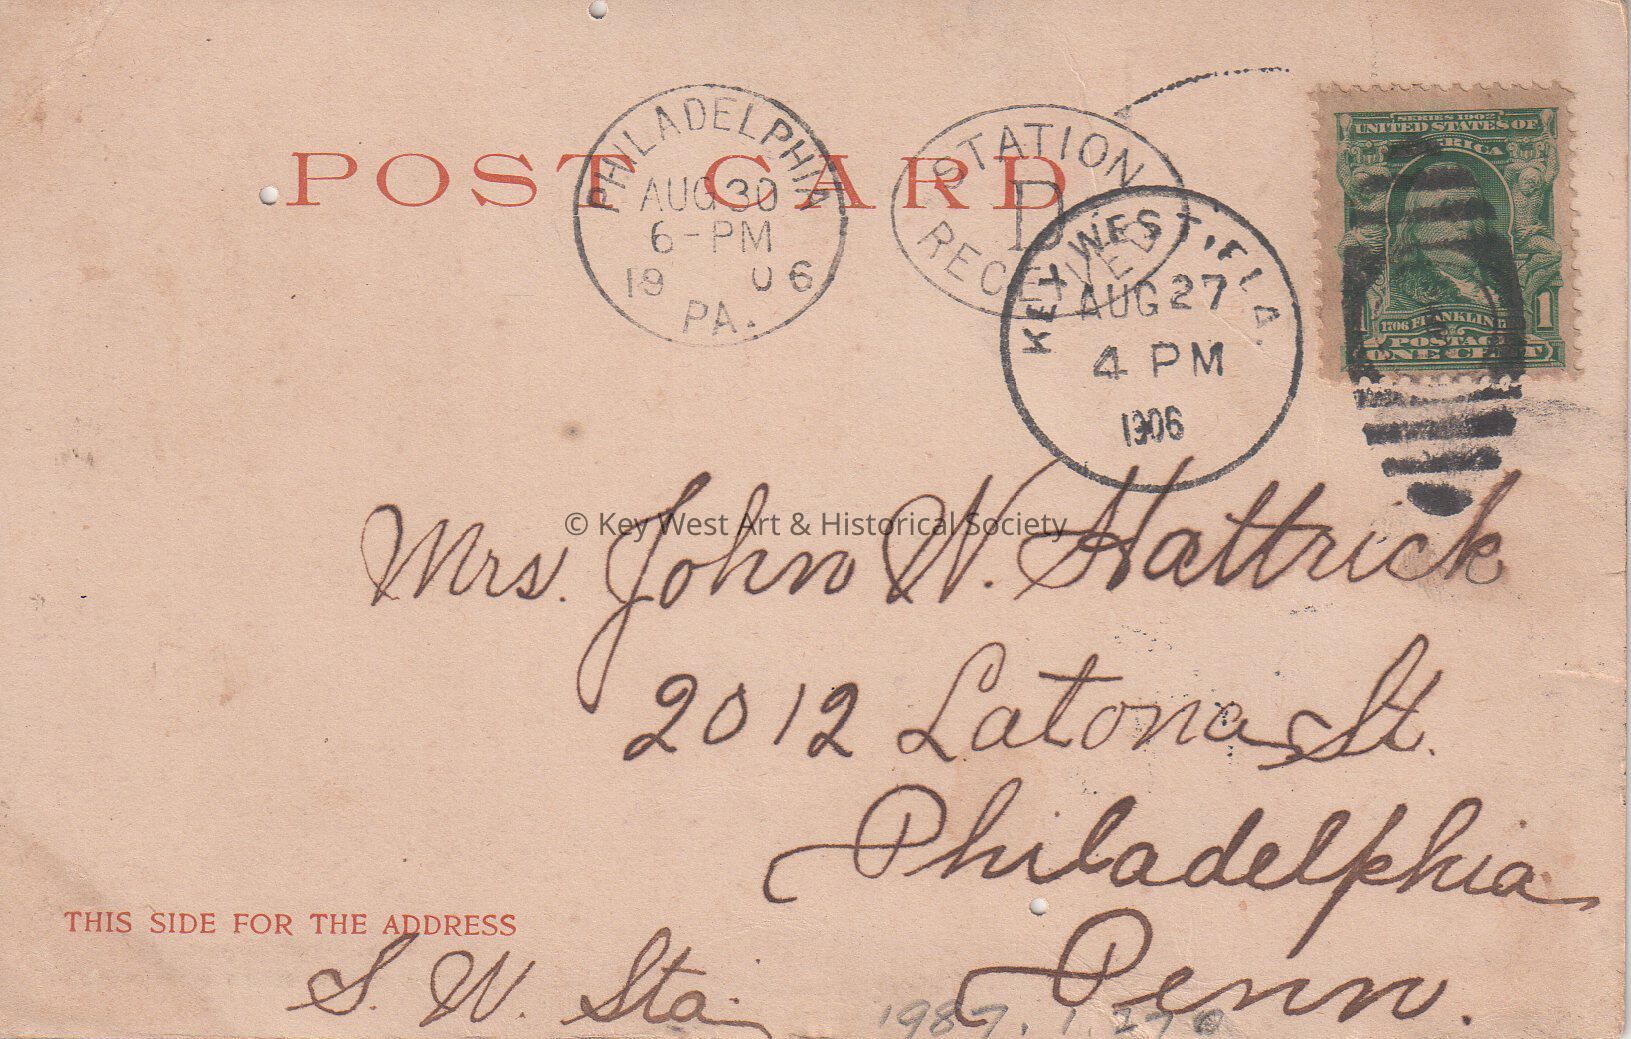 POST CARD
PHILADELPHIA
AUG 30
6-PM
1906
PA.
STATION
RECEIVED
KEY WEST, FLA.
AUG 27
4 PM
1906
SERIES 1902
UNITED STATES OF
AMERICA
1706 FRANKLIN
POSTAGE
1 ONE CENT 1
© Key West Art & Historical Society
Mrs. John W. Hattrick
2012 Latona St.
Philadelphia
Penn.
THIS SIDE FOR THE ADDRESS
S. W. Sta.
1987.1.270